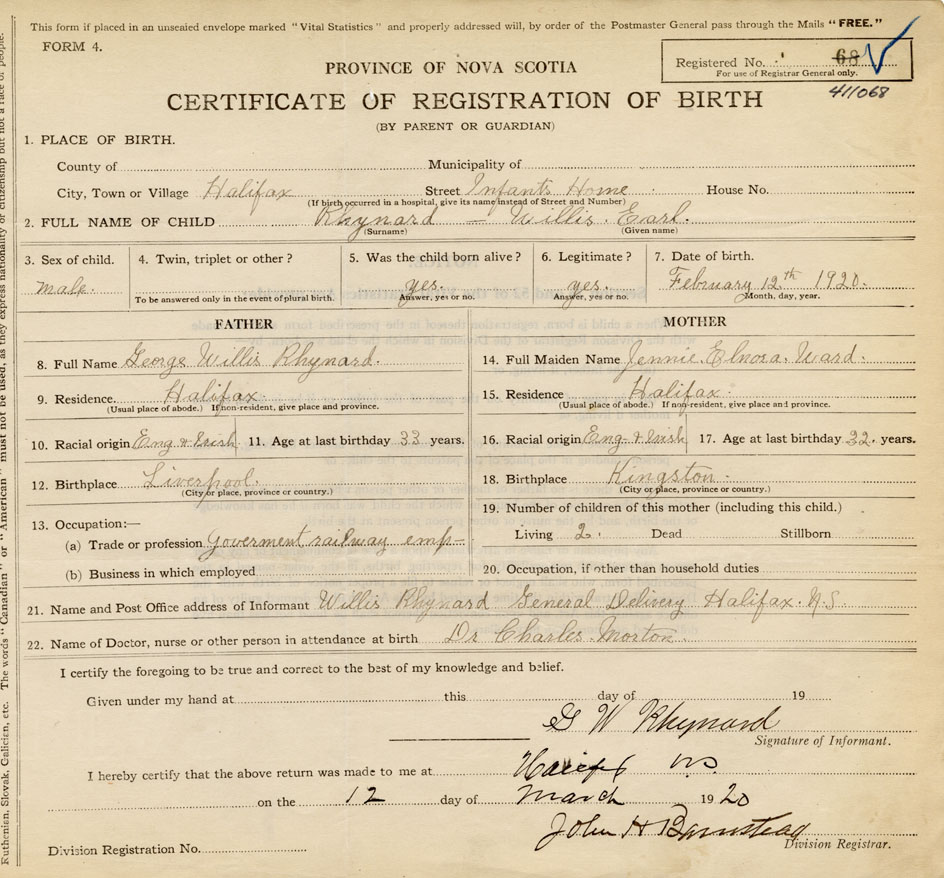 This form if placed in an unsealed envelope marked "Vital Statistics" and properly addressed will, by order of the Postmaster General pass through the Mails "FREE."
FORM 4.
Registered No. 68
For use of Registrar General only.
411068
PROVINCE OF NOVA SCOTIA
CERTIFICATE OF REGISTRATION OF BIRTH
(BY PARENT OR GUARDIAN)
1. PLACE OF BIRTH.
County of Municipality of
City, Town or Village Halifax Street Infants Home House No.
(If birth occurred in a hospital, give its name instead of Street and Number)
2. FULL NAME OF CHILD Rhynard - Willis Earl.
(Surname) (Given name)
3. Sex of child. 4. Twin, triplet or other? 5. Was the child born alive? 6. Legitimate? 7. Date of birth.
male. yes. yes. February 12th 1920.
To be answered only in the event of plural birth. Answer, yes or no. Answer, yes or no. Month, day, year.
FATHER
8. Full Name George Willis Rhynard.
9. Residence. Halifax.
(Usual place of abode.) If non-resident, give place and province.
10. Racial origin Eng & Irish 11. Age at last birthday 33 years.
12. Birthplace Liverpool.
(City or place, province or country.)
13. Occupation:—
(a) Trade or profession Goverment railway emp-
(b) Business in which employed
MOTHER
14. Full Maiden Name Jennie Elnora Ward.
15. Residence Halifax.
(Usual place of abode.) If non-resident, give place and province.
16. Racial origin Eng & Irish 17. Age at last birthday 32. years.
18. Birthplace Kingston
(City or place, province or country.)
19. Number of children of this mother (including this child.)
Living 2. Dead Stillborn
20. Occupation, if other than household duties
21. Name and Post Office address of Informant Willis Rhynard General Delivery Halifax. N.S.
22. Name of Doctor, nurse or other person in attendance at birth Dr Charles Morton.
I certify the foregoing to be true and correct to the best of my knowledge and belief.
Given under my hand at this day of 19
G W Rhynard
Signature of Informant.
I hereby certify that the above return was made to me at Halifax NS
on the 12 day of March 1920
John H Barnstead
Division Registrar.
Division Registration No.
Ruthenian, Slovak, Galician, etc. The words "Canadian" or "American" must not be used, as they express nationality or citizenship but not a race of people.